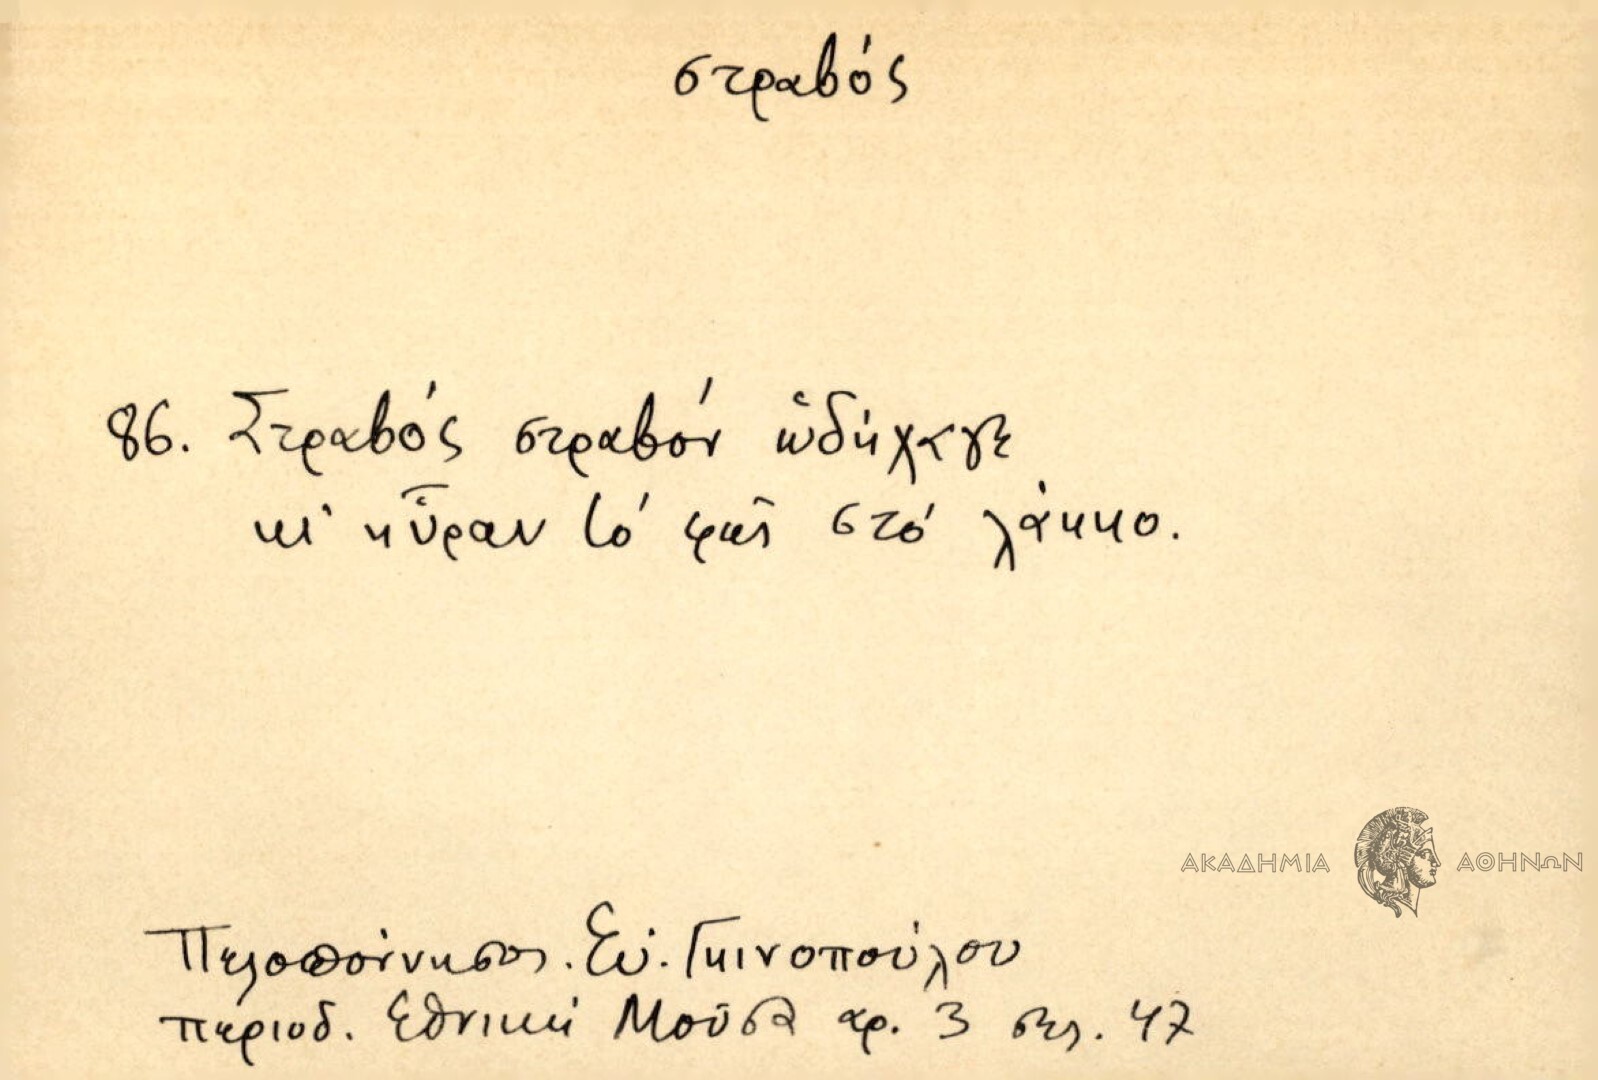 στραβός
86. Στραβός στραβόν ὡδήγαγε
κι' ηὗραν τό φῶς στό λάκκο.
ΑΚΑΔΗΜΙΑ ΑΘΗΝΩΝ
Πελοπόννησος. Εὐ. Γκινοπούλου
περιοδ. Ἐθνική Μοῦσα αρ. 3 σελ. 47